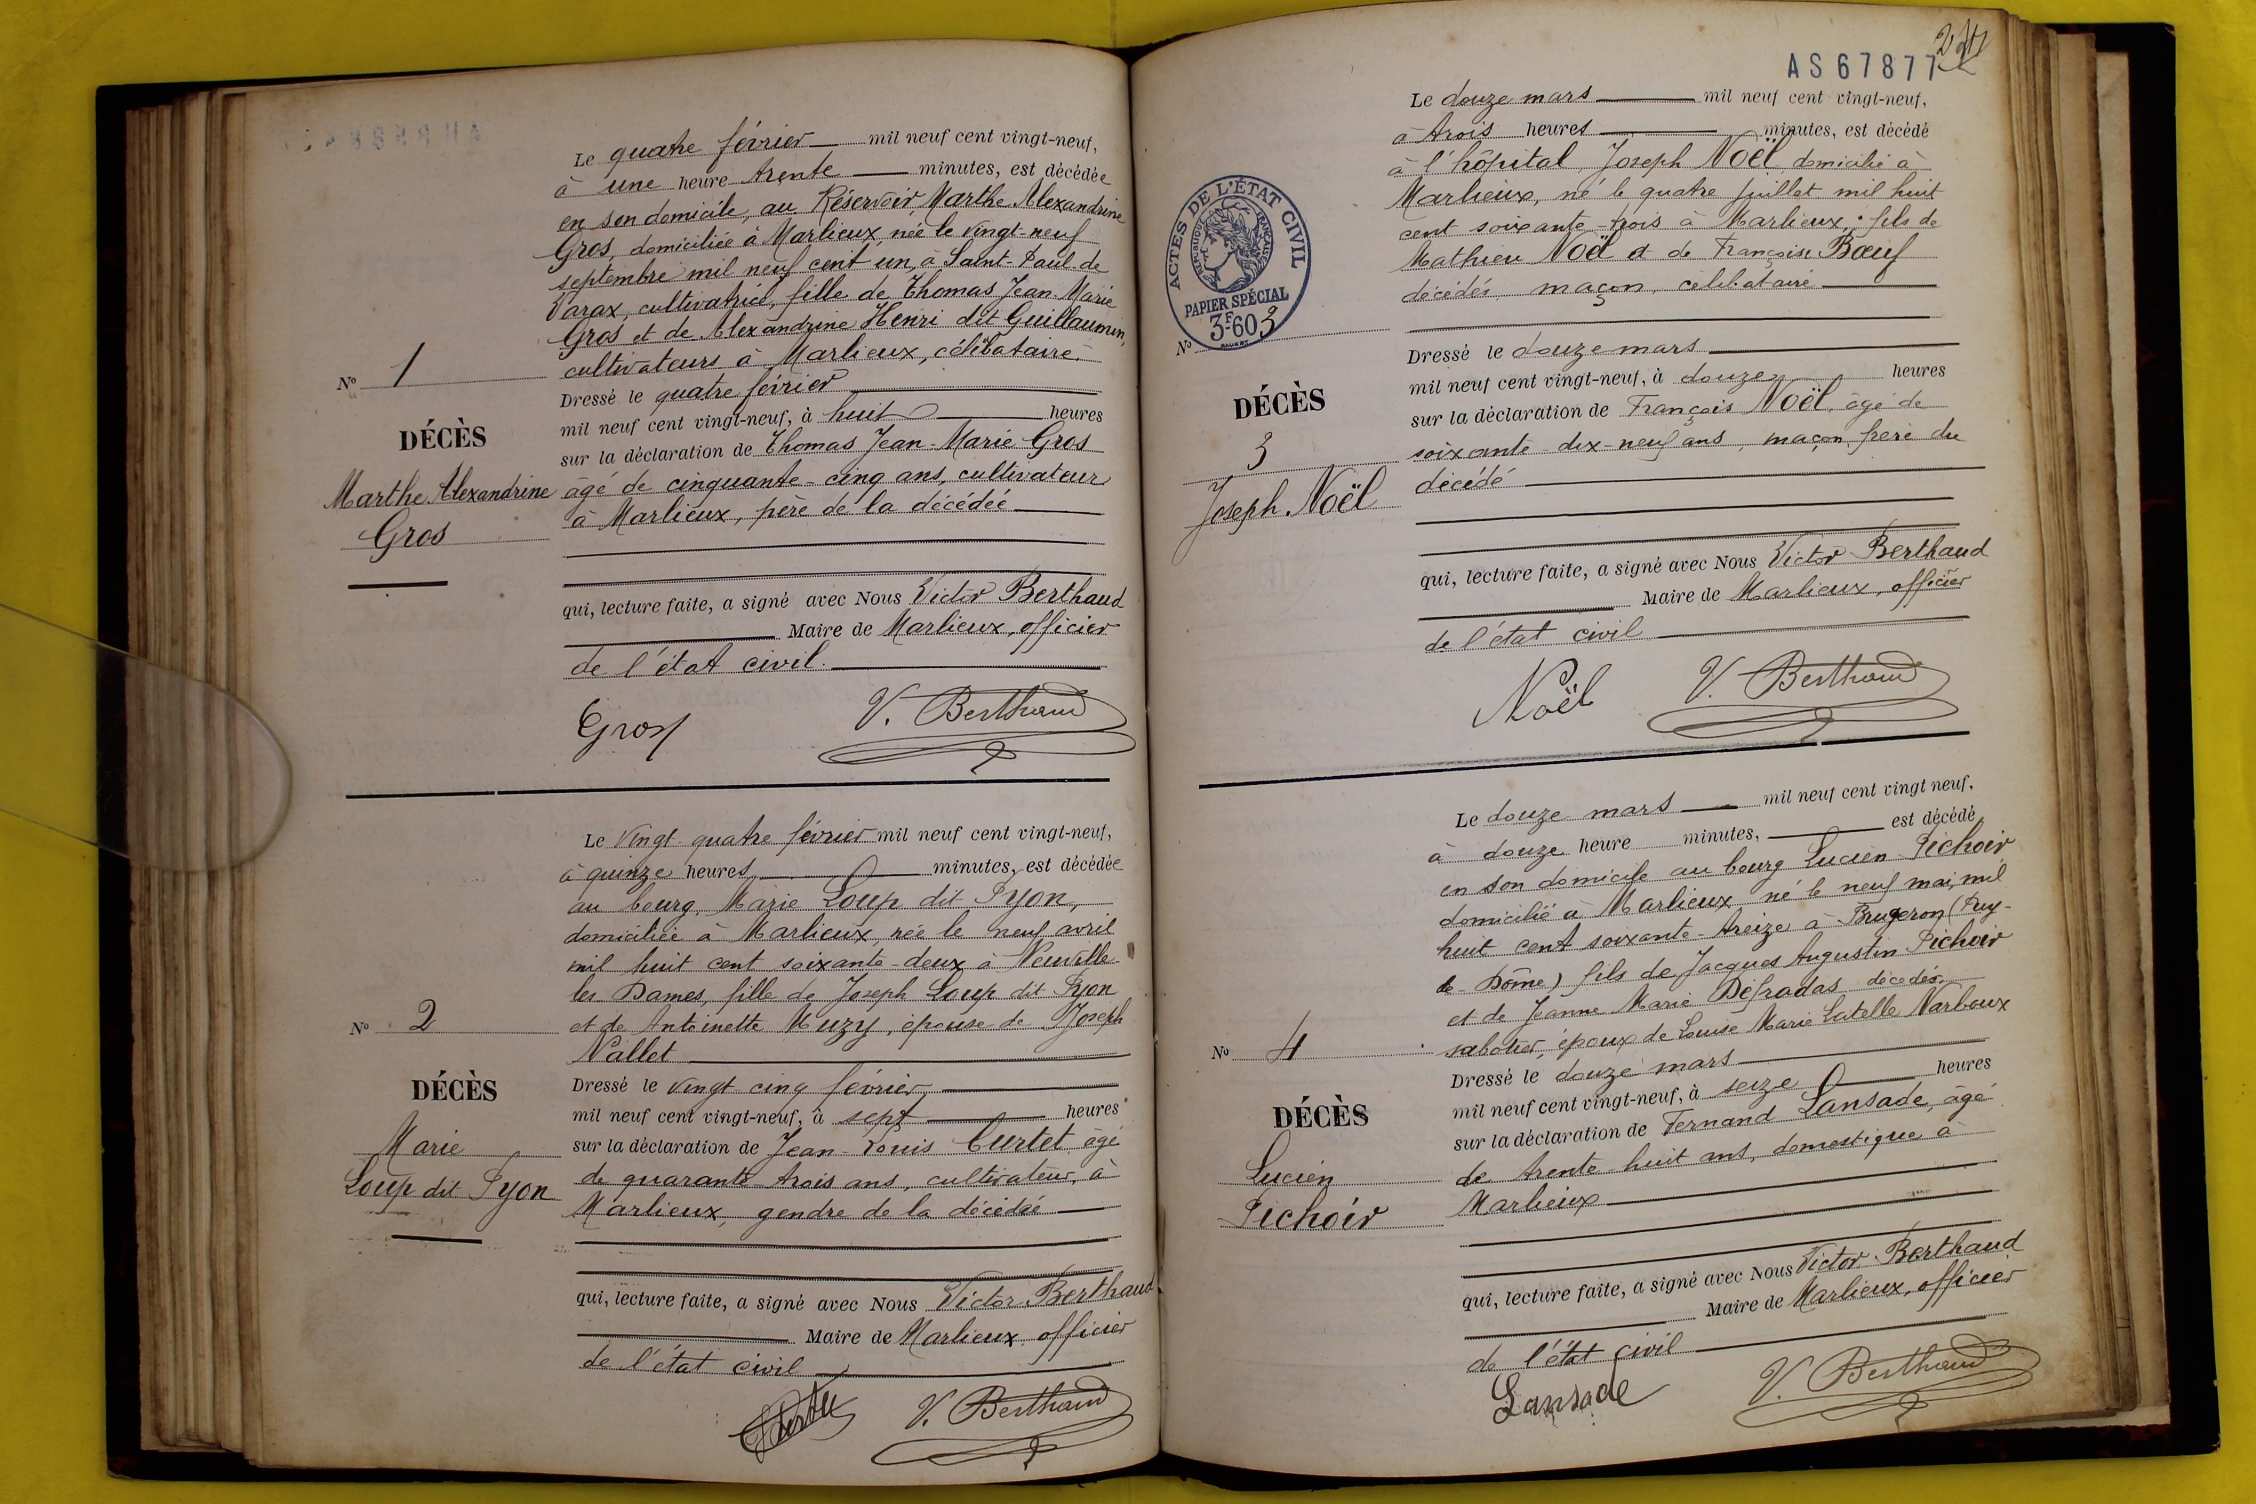 Le quatre février mil neuf cent vingt-neuf,
à une heure trente minutes, est décédée
en son domicile, au Réservoir, Marthe Alexandrine
Gros, domiciliée à Marlieux, née le vingt-neuf
septembre mil neuf cent un, à Saint-Paul-de
Varax, cultivatrice, fille de Thomas Jean-Marie
Gros et de Alexandrine Henri dit Guillaumin,
cultivateurs à Marlieux, célibataire.
Nº 1
DÉCÈS
Marthe Alexandrine
Gros
Dressé le quatre février
mil neuf cent vingt-neuf, à huit heures
sur la déclaration de Thomas Jean-Marie Gros
âgé de cinquante-cinq ans, cultivateur
à Marlieux, père de la décédée
qui, lecture faite, a signé avec Nous Victor Berthaud
Maire de Marlieux, officier
de l'état civil.
Gros V. Berthaud
Le vingt-quatre février mil neuf cent vingt-neuf,
à quinze heures minutes, est décédée
au bourg, Marie Loup dit Pyon,
domiciliée à Marlieux, née le neuf avril
mil huit cent soixante-deux à Neuville-
les Dames, fille de Joseph Loup dit Pyon
et de Antoinette Muzy, épouse de Joseph
Nallet
Nº 2
DÉCÈS
Marie
Loup dit Pyon
Dressé le vingt cinq février,
mil neuf cent vingt-neuf, à sept heures
sur la déclaration de Jean-Louis Curtet, âgé
de quarante trois ans, cultivateur, à
Marlieux, gendre de la décédée
qui, lecture faite, a signé avec Nous Victor Berthaud
Maire de Marlieux officier
de l'état civil
V. Berthaud
AS67877
Le douze mars mil neuf cent vingt-neuf,
à trois heures minutes, est décédé
à l'hôpital, Joseph Noël, domicilié à
Marlieux, né le quatre juillet mil huit
cent soixante-trois à Marlieux, fils de
Mathieu Noël et de Françoise Bœuf
décédés, maçon, célibataire
ACTES DE L'ÉTAT CIVIL
RÉPUBLIQUE FRANÇAISE
PAPIER SPÉCIAL
3F60
Nº 3
DÉCÈS
3
Joseph Noël
Dressé le douze mars
mil neuf cent vingt-neuf, à douze heures
sur la déclaration de François Noël, âgé de
soixante-dix-neuf ans, maçon, frère du
décédé
qui, lecture faite, a signé avec Nous Victor Berthaud
Maire de Marlieux, officier
de l'état civil
Noël V. Berthaud
Le douze mars mil neuf cent vingt neuf,
à douze heure minutes, est décédé
en son domicile au bourg Lucien Pichoir
domicilié à Marlieux né le neuf mai, mil
huit cent soixante-treize à Brugeron (Puy-
de-Dôme) fils de Jacques Augustin Pichoir
et de Jeanne Marie Défradas décédés,
sabotier, époux de Louise Marie Narboux
Nº 4
DÉCÈS
Lucien
Pichoir
Dressé le douze mars
mil neuf cent vingt-neuf, à seize heures
sur la déclaration de Fernand Lansade, âgé
de trente-huit ans, domestique à
Marlieux
qui, lecture faite, a signé avec Nous Victor Berthaud
Maire de Marlieux, officier
de l'état civil
Lansade V. Berthaud